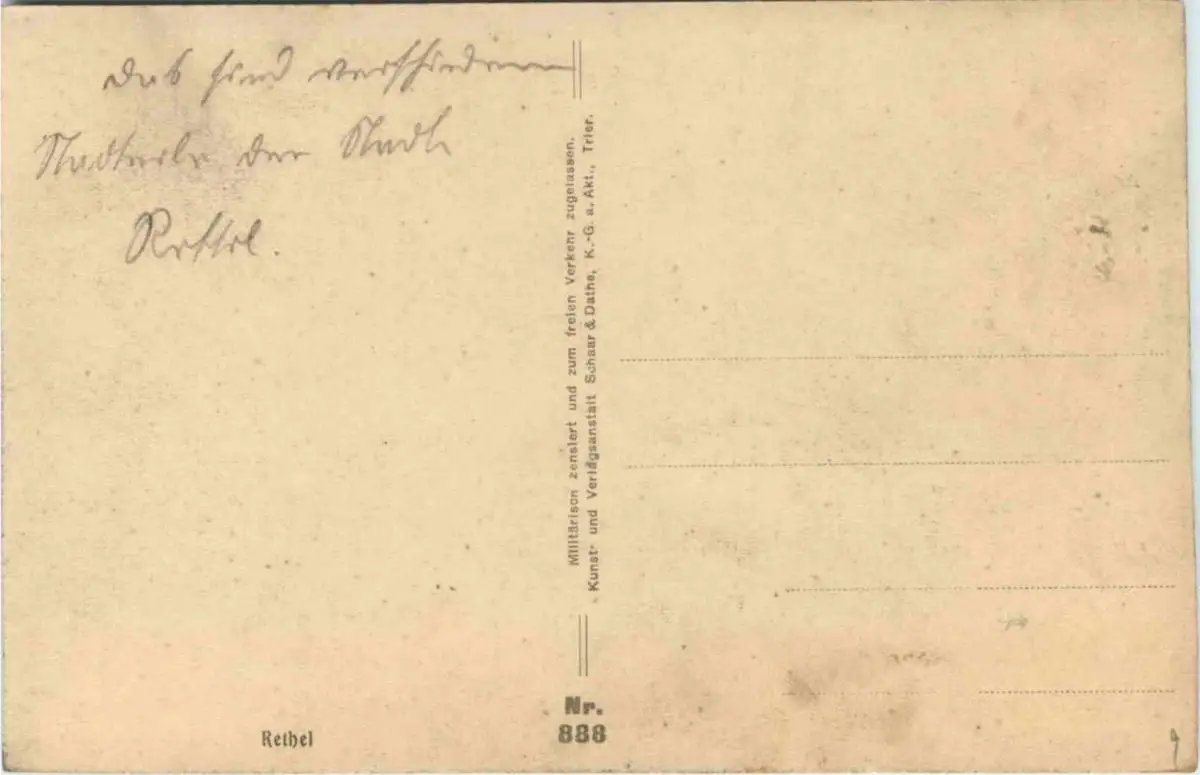 Das sind verschiedene
Stadteile der Stadt
Rethel.
Militärisch zensiert und zum freien Verkehr zugelassen.
Kunst- und Verlagsanstalt Schaar & Dathe, K.-G. a. Akt., Trier.
Nr.
888
Rethel